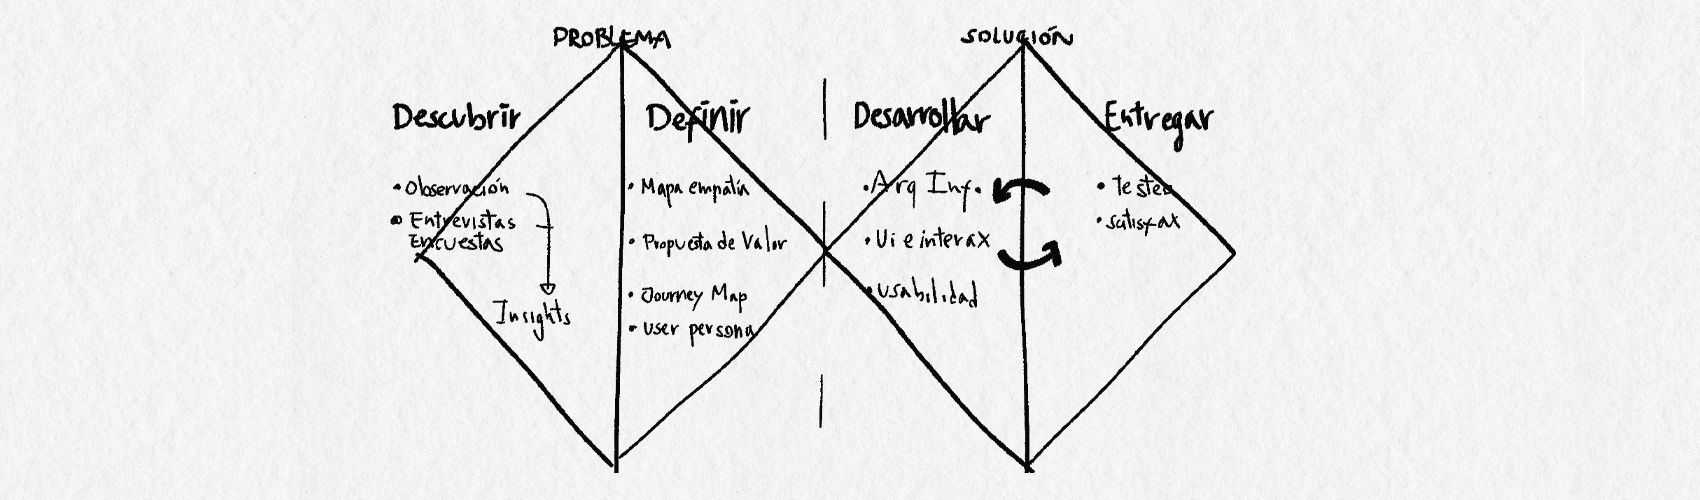 PROBLEMA
Descubrir
• Observación
• Entrevistas
Encuestas
Insights
Definir
• Mapa empatía
• Propuesta de Valor
• Journey Map
• user persona
SOLUCIÓN
Desarrollar
• Arq Inf.
• Ui e interax
• usabilidad
Entregar
• Testeo
• satisfax